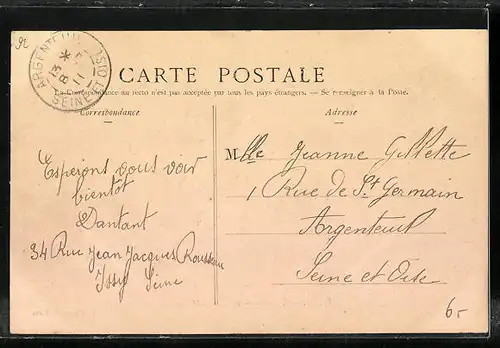 ARGENTEUIL
SEINE ET OISE
CARTE POSTALE
La Correspondance au recto n'est pas acceptée par tous les pays étrangers. — Se renseigner à la Poste.
Correspondance
Adresse
Esperons vous voir
bientôt
Dantant
34 Rue Jean Jacques Rousseau
Issy Seine
Mlle Jeanne Gillette
1 Rue de St Germain
Argenteuil
Seine et Oise
6-